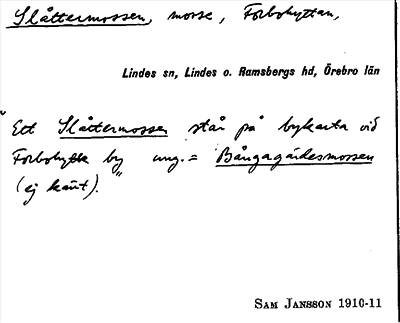 Slåttermossen, mosse, Forbohyttan,
Lindes sn, Lindes o. Ramsbergs hd, Örebro län
"Ett Slåttermossen står på bykarta vid
Forbohytte by" ung. = Bångagärdesmossen
(ej känt).
SAM JANSSON 1910-11